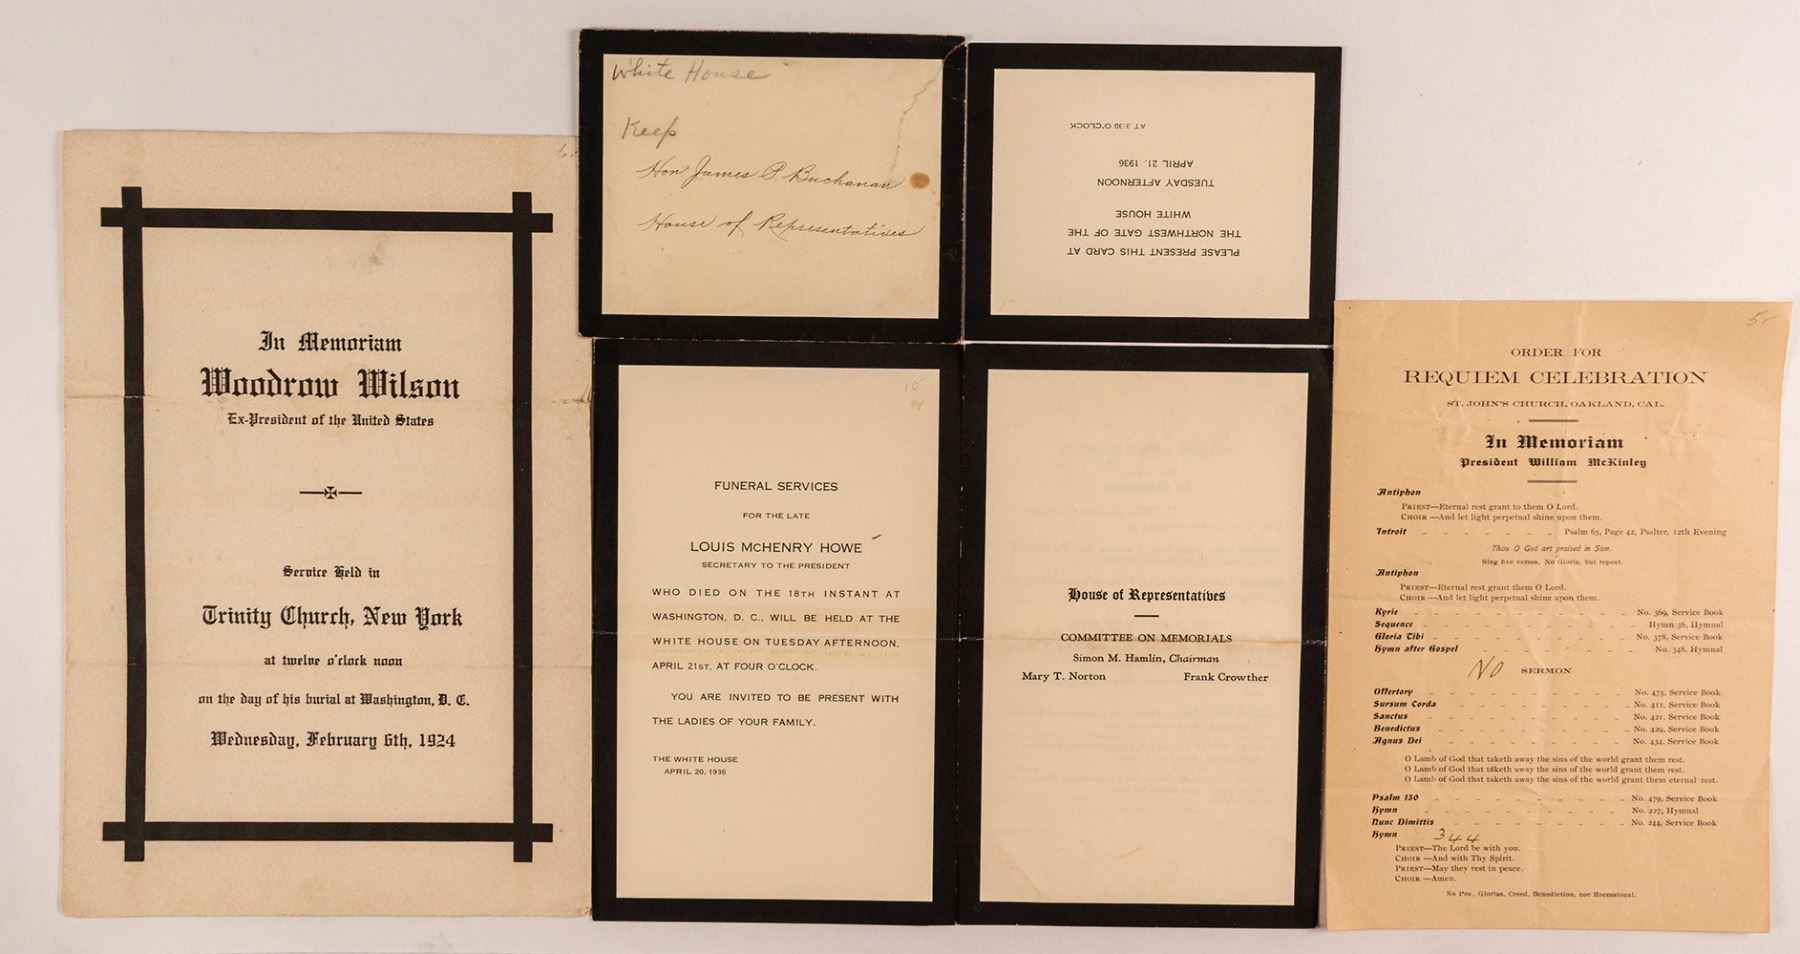 In Memoriam
Woodrow Wilson
Ex-President of the United States
Service Held in
Trinity Church, New York
at twelve o'clock noon
on the day of his burial at Washington, D. C.
Wednesday, February 6th, 1924
White House
Keep
Hon James P Buchanan
House of Representatives
PLEASE PRESENT THIS CARD AT
THE NORTHWEST GATE OF THE
WHITE HOUSE
TUESDAY AFTERNOON
APRIL 21, 1936
AT 3:30 O'CLOCK
FUNERAL SERVICES
FOR THE LATE
LOUIS McHENRY HOWE
SECRETARY TO THE PRESIDENT
WHO DIED ON THE 18TH INSTANT AT
WASHINGTON, D. C., WILL BE HELD AT THE
WHITE HOUSE ON TUESDAY AFTERNOON,
APRIL 21ST, AT FOUR O'CLOCK.
YOU ARE INVITED TO BE PRESENT WITH
THE LADIES OF YOUR FAMILY.
THE WHITE HOUSE
APRIL 20, 1936
House of Representatives
COMMITTEE ON MEMORIALS
Simon M. Hamlin, Chairman
Mary T. Norton Frank Crowther
5-
ORDER FOR
REQUIEM CELEBRATION
ST. JOHN'S CHURCH, OAKLAND, CAL.
In Memoriam
President William McKinley
Antiphon
PRIEST—Eternal rest grant to them O Lord.
CHOIR—And let light perpetual shine upon them.
Introit - - - - - - Psalm 65, Page 42, Psalter, 12th Evening
Thou O God art praised in Sion.
Sing five verses, No Gloria, but repeat.
Antiphon
PRIEST—Eternal rest grant them O Lord.
CHOIR—And let light perpetual shine upon them.
Kyrie - - - - - - No. 369, Service Book
Sequence - - - - - - Hymn 36, Hymnal
Gloria Tibi - - - - - - No. 378, Service Book
Hymn after Gospel - - - - - - No. 348, Hymnal
NO SERMON
Offertory - - - - - - No. 475, Service Book
Sursum Corda - - - - - - No. 411, Service Book
Sanctus - - - - - - No. 421, Service Book
Benedictus - - - - - - No. 429, Service Book
Agnus Dei - - - - - - No. 434, Service Book
O Lamb of God that taketh away the sins of the world grant them rest.
O Lamb of God that taketh away the sins of the world grant them rest.
O Lamb of God that taketh away the sins of the world grant them eternal rest.
Psalm 130 - - - - - - No. 479, Service Book
Hymn - - - - - - No. 227, Hymnal
Nunc Dimittis - - - - - - No. 244, Service Book
Hymn 344
PRIEST—The Lord be with you.
CHOIR—And with Thy Spirit.
PRIEST—May they rest in peace.
CHOIR—Amen.
No Pro., Glorias, Creed, Benediction, nor Recessional.